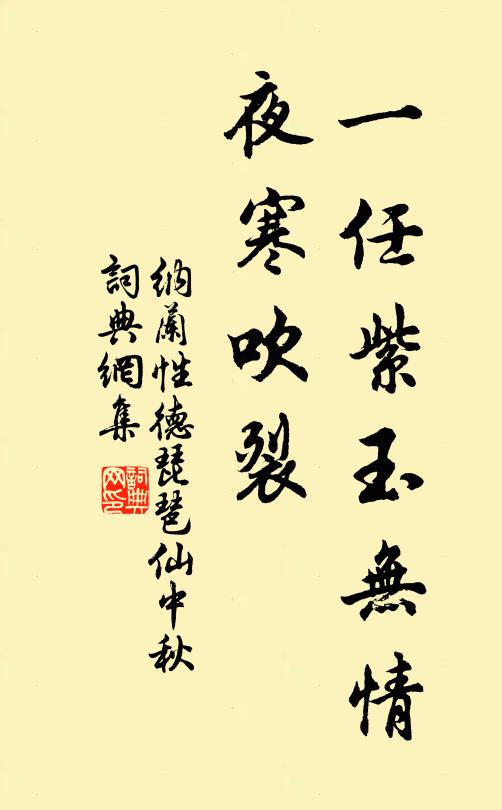 一任紫玉無情
夜寒吹裂
納蘭性德琵琶仙中秋
詞典網集
詞典网印